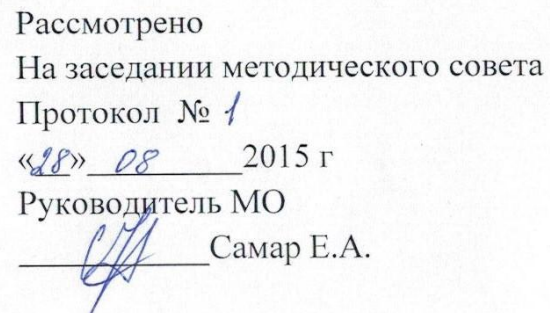 Рассмотрено
На заседании методического совета
Протокол № 1
«28» 08 2015 г
Руководитель МО
Самар Е.А.